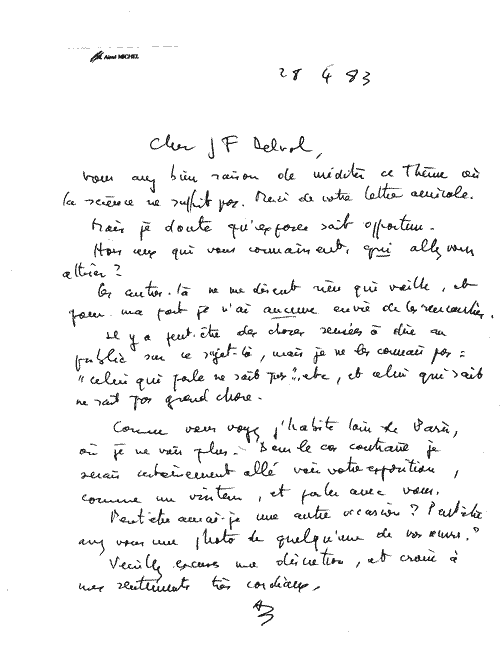 Aimé MICHEL
28 4 83
Cher J F Delvol,
Vous avez bien raison de méditer ce thème où
la science ne suffit pas. Merci de votre lettre amicale.
Mais je doute qu'exposer soit opportun.
Hors ceux qui vous connaissent, qui allez vous
attirer ?
Les autres-là ne me disent rien qui vaille, et
pour ma part je n'ai aucune envie de les rencontrer.
Il y a peut-être des choses sensées à dire au
public sur ce sujet-là, mais je ne les connais pas :
"celui qui parle ne sait pas", etc, et celui qui sait
ne sait pas grand chose.
Comme vous voyez j'habite loin de Paris,
où je ne vais plus. Dans le cas contraire je
serais certainement allé voir votre exposition,
comme un visiteur, et parler avec vous.
Peut-être aurai-je une autre occasion ? Peut-être
avez vous une photo de quelqu'une de vos œuvres ?
Veuillez excuser ma discrétion, et croire à
mes sentiments très cordiaux,